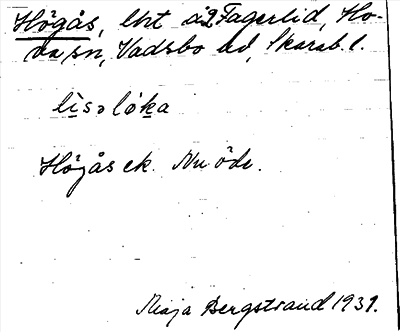 Högås, lht å 2 Fagerlid, Ho-
va sn, Vadsbo hd, Skarab. l.
lisɔløka
Högås ek. Nu öde.
Maja Bergstrand 1931.